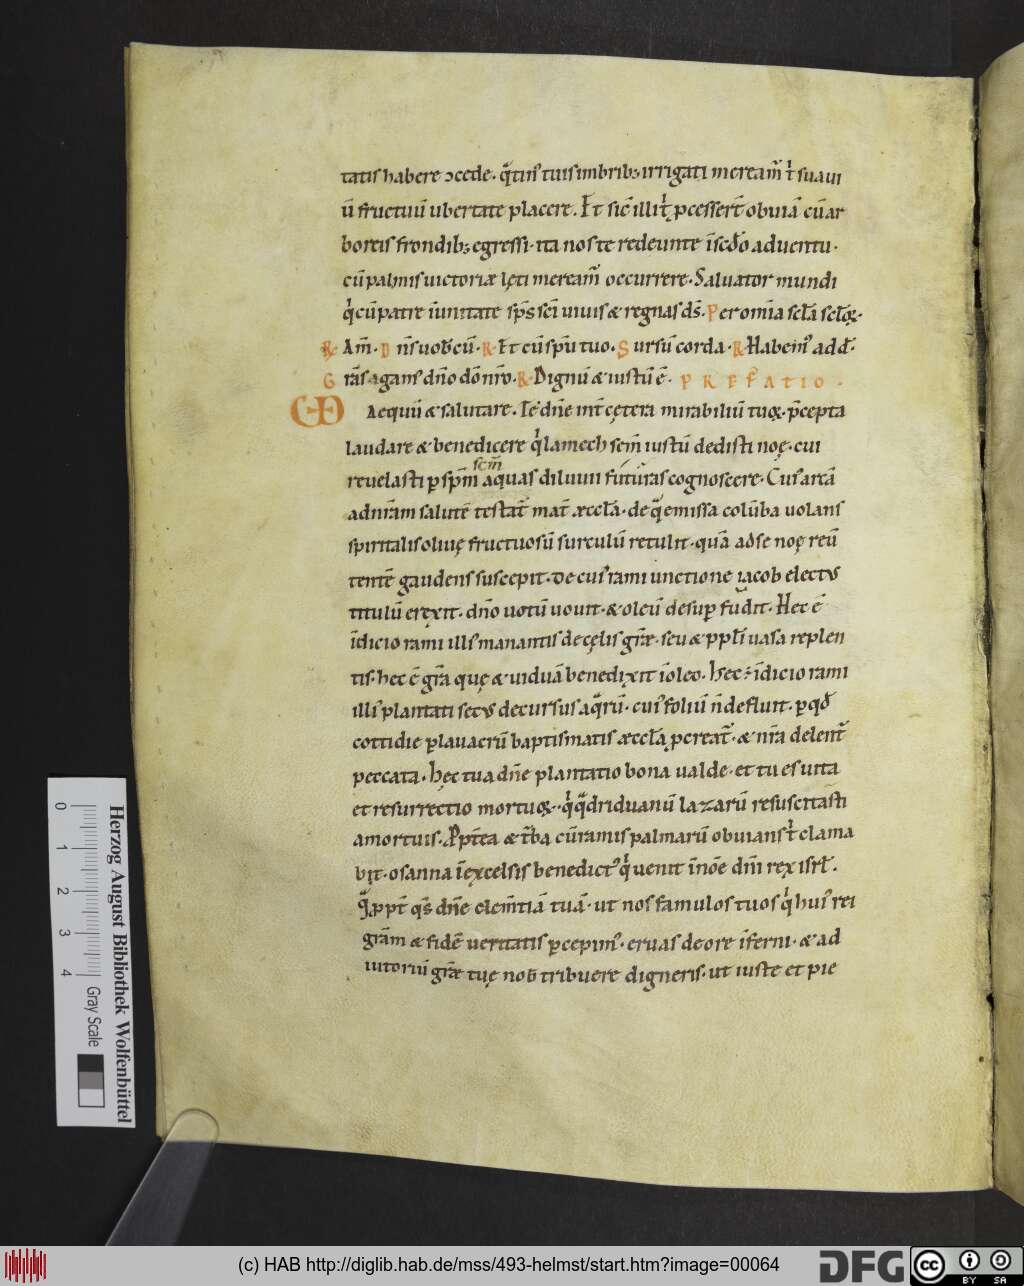 tatis habere ↄcede. q̄tin᷒ tuis imbrib; irrigati meream̄ t̄ suaui
ū fructuū ubertate placere. Et sic̄ illi t̄ ꝓcesser̄ obuiā cū ar
boreis frondib; egressi. ita nos te redeunte ī scd̄o aduentu.
cū palmis uictoriæ lęti meream̄ occurrere. Saluator mundi
q̍ cū patre ī unitate sp̄s sc̄i uiuis & regnas ds̄. Per om̄ia scl̄a scl̄oꝝ.
R Am̄. D n̄s uob̄cū. R Et cū sp̄u tuo. Sursū corda. R Habem᷒ ad d̄.
Grās agam᷒ dn̄o dō nr̄o. R Dignū & iustū ē. PREFATIO.
VD Aequū & salutare. Te dn̄e int̄ cętera mirabiliū tuoꝝ p̄cepta
laudare & benedicere q̍ lamech sem̄ iustū dedisti noę. cui
reuelasti ꝑ sp̄m sc̄m aquas diluuii futuras cognoscere. Cui᷒ arcā
ad nr̄am salutē testat̄ mat̄ æccl̄a. de q̄ emissa colūba uolans
spiritalis oliuę fructuosū surculū retulit. quā ad se noę reū
tentē gaudens suscepit. De cui᷒ rami unctione iacob elect᷒
titulū erexit. dn̄o uotū uouit. & oleū desuꝑ fudit. Hec ē
īdicio rami illi᷒ manantis de cęlis gr̄æ. seu & ꝓpl̄i uasa replen
tis. hec ē gr̄a quę & uiduā benedixit ī oleo. hec ÷ īdicio rami
illi᷒ plantati sec᷒ decursus aq̄rū. cui᷒ foliū n̄ defluit. ꝑ qd̄
cottidie ꝑ lauacrū baptismatis æccl̄a ꝓcreat̄. & nr̄a delent̄
peccata. hęc tua dn̄e plantatio bona ualde. et tu es uita
et resurrectio mortuoꝝ. q̍ q̄driduanū lazarū resuscitasti
a mortuis. Ꝓpt̄ea & t̄ba cū ramis palmarū obuians t̍ clama
bit. osanna ī excelsis benedict᷒ q̍ uenit ī nōe dn̄i rex isrl̄.
Q̄ ꝓpt̄ qs̄ dn̄e clem̄tiā tuā. ut nos famulos tuos q̍ hui᷒ rei
grām & fidē ueritatis ꝑcepim᷒. eruas de ore īferni. & ad
iutoriū gr̄æ tuę nob̄ tribuere digneris. ut iuste et pie
Herzog August Bibliothek Wolfenbüttel
0 1 2 3 4 Gray Scale
(c) HAB http://diglib.hab.de/mss/493-helmst/start.htm?image=00064
DFG
cc BY SA